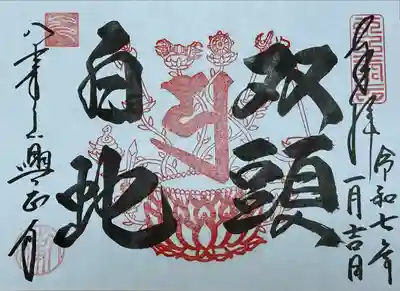 奉拝
令和七年
一月吉日
双頭
白虵
八事山 興正寺